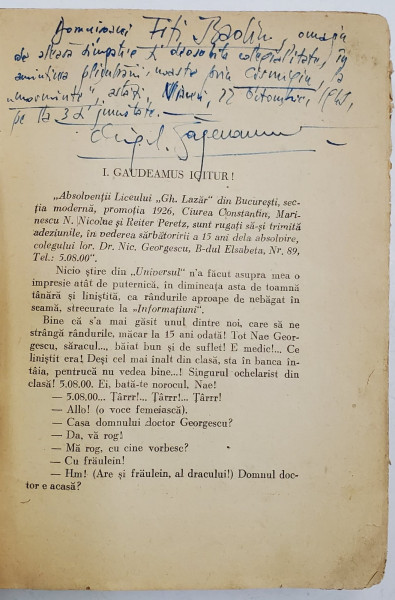 Domnișoarei Fifi Badiu, omagiu
de aleasă simpatie și deosebită colegialitate, în
amintirea plimbării noastre prin Cișmigiu, la
„morminte”, astăzi, Vineri, 22 Octombrie, 1943,
pe la 3 și jumătate.
I. GAUDEAMUS IGITUR !
„Absolvenții Liceului „Gh. Lazăr” din București, sec-
ția modernă, promoția 1926, Ciurea Constantin, Mari-
nescu N. Nicolae și Reiter Peretz, sunt rugați să-și trimită
adeziunile, în vederea sărbătoririi a 15 ani dela absolvire,
colegului lor. Dr. Nic. Georgescu, B-dul Elsabeta, Nr. 89,
Tel.: 5.08.00”.
Nicio știre din „Universul” n'a făcut asupra mea o
impresie atât de puternică, în dimineața asta de toamnă
tânără și liniștită, ca rândurile aproape de nebăgat în
seamă, strecurate la „Informațiuni”.
Bine că s'a mai găsit unul dintre noi, care să ne
strângă rândurile, măcar la 15 ani odată! Tot Nae Geor-
gescu, săracul..., băiat bun și de suflet! E medic!... Ce
liniștit era! Deși cel mai înalt din clasă, sta în banca în-
tâia, pentrucă nu vedea bine...! Singurul ochelarist din
clasă! 5.08.00. Ei, bată-te norocul, Nae!
— 5.08.00... Țârrr!... Țârrr!... Țârrr!
— Allo! (o voce femeiască).
— Casa domnului doctor Georgescu?
— Da, vă rog!
— Mă rog, cu cine vorbesc?
— Cu fräulein!
— Hm! (Are și fräulein, al dracului!) Domnul doc-
tor e acasă?